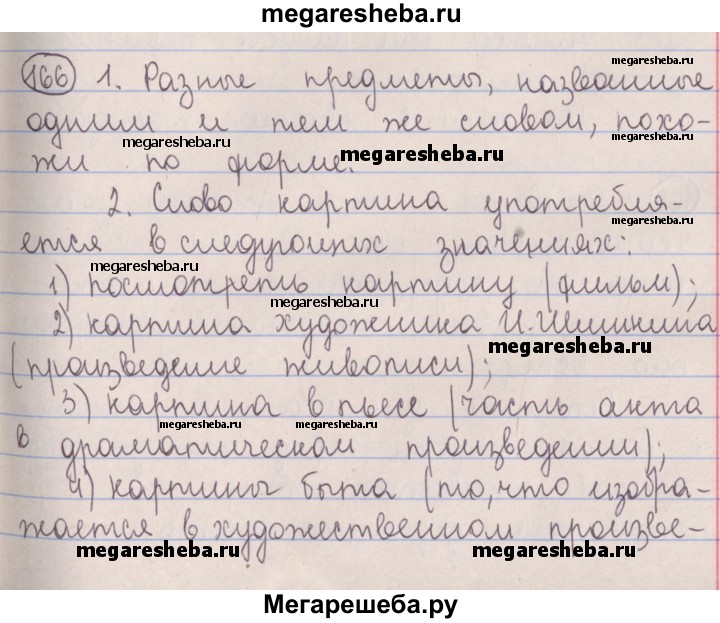 megaresheba.ru
166 1. Разные предметы, названные
megaresheba.ru
одним и тем же словом, похо-
megaresheba.ru
megaresheba.ru
жи по форме.
megaresheba.ru
2. Слово картина употребля-
megaresheba.ru
ется в следующих значениях:
megaresheba.ru
1) посмотреть картину (фильм);
megaresheba.ru
2) картина художника И. Шишкина
megaresheba.ru
(произведение живописи);
3) картина в пьесе (часть акта
megaresheba.ru megaresheba.ru
в драматическом произведении);
4) картины быта (то, что изобра-
жается в художественном произве-
megaresheba.ru megaresheba.ru
Мегарешеба.ру